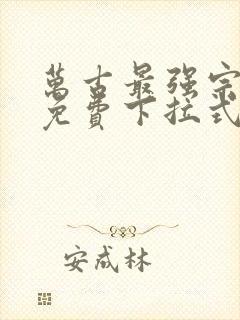 萬古最强宗
免費下拉式
安成林